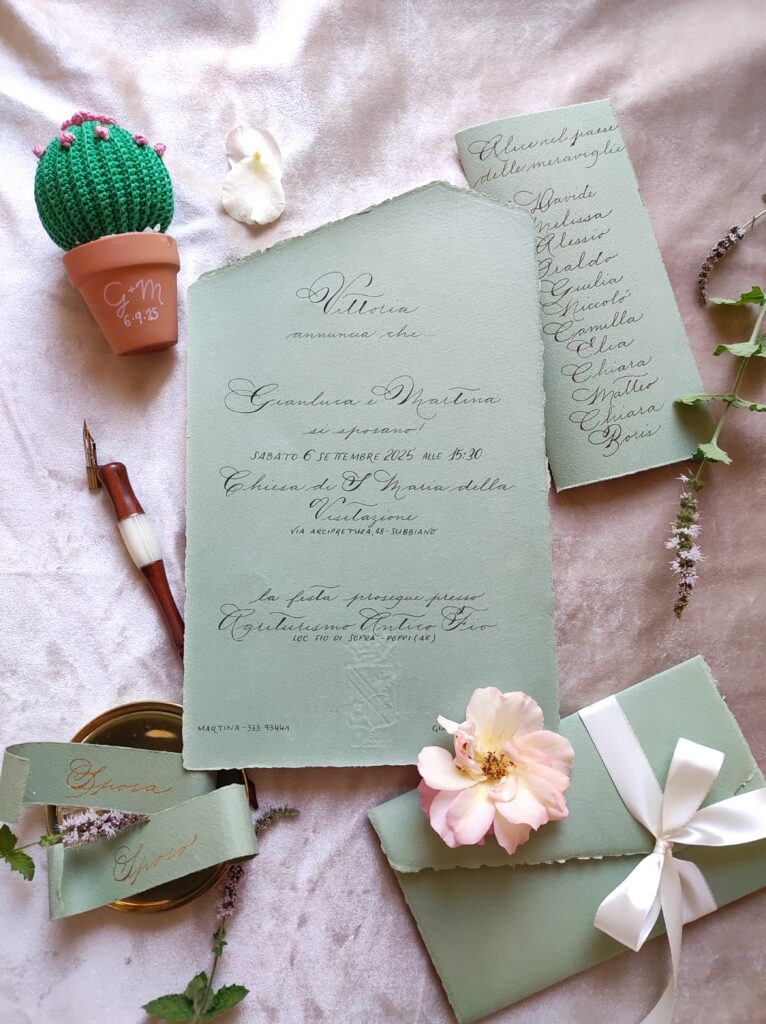 G+M
6.9.25
Vittoria
annuncia che...
Gianluca e Martina
si sposano!
SABATO 6 SETTEMBRE 2025 ALLE 15:30
Chiesa di S Maria della
Visitazione
VIA ARCIPRETURA, 48 - SUBBIANO
la festa prosegue presso
Agriturismo Antico Fio
LOC FIO DI SOPRA POPPI (AR)
MARTINA - 333 93441
Alice nel paese
delle meraviglie
Davide
Melissa
Alessio
Giulia
Niccolò
Camilla
Elia
Chiara
Matteo
Chiara
Boris
Sposa
Sposo